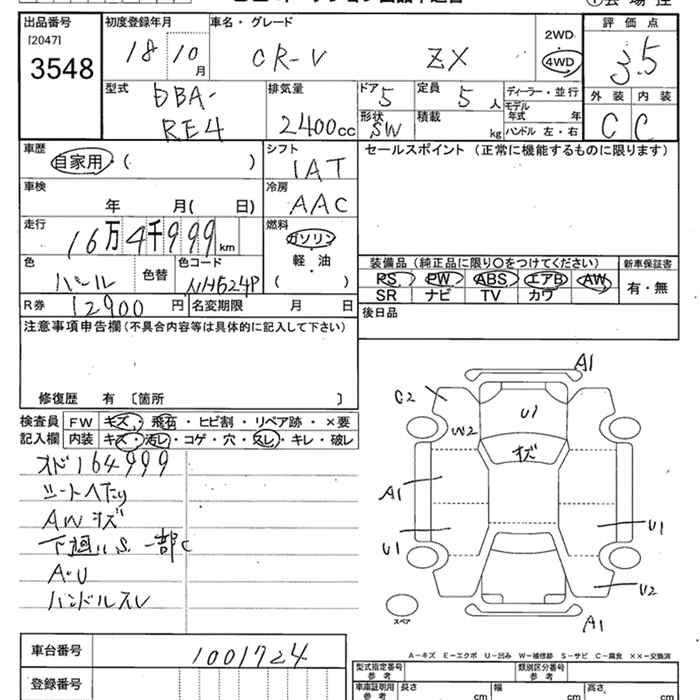 出品番号 初度登録年月 車名・グレード 評価点
[2047]
3548
18 10月 CR-V ZX 2WD 4WD 3.5
型式 DBA-RE4
排気量 2400cc
ドア 5 定員 5人 ディーラー・並行
形状 SW 積載 kg モデル年式 年
ハンドル 左・右
外装 内装
C C
車歴 自家用・( )
シフト IAT
セールスポイント (正常に機能するものに限ります)
車検 年 月( 日)
冷房 AAC
走行 16万4千999km
燃料 ガソリン・軽油 ( )
色 パール 色替 色コード NH624P
装備品 (純正品に限り〇をつけてください) 新車保証書
P.S. PW ABS エアB AW
SR ナビ TV カワ
有・無
R券 12900円 名変期限 月 日
後日品
注意事項申告欄 (不具合内容等は具体的に記入して下さい)
修復歴 有 〔箇所 〕
検査員記入欄
FW キズ・飛石・ヒビ割・リペア跡・×要
内装 キズ・汚レ・コゲ・穴・スレ・キレ・破レ
オド164999
シートへたり
AWキズ
下廻りS.一部C
A・U
ハンドルスレ
A1
C2
U1
W2
キズ
A1
U1
U1
U2
A1
スペア
車台番号 1001724
登録番号
A-キズ E-エクボ U-凹み W-補修跡 S-サビ C-腐食 ××-交換済
型式指定番号 参考 類別区分番号 参考
車庫証明用 参考 長さ cm 幅 cm 高さ cm